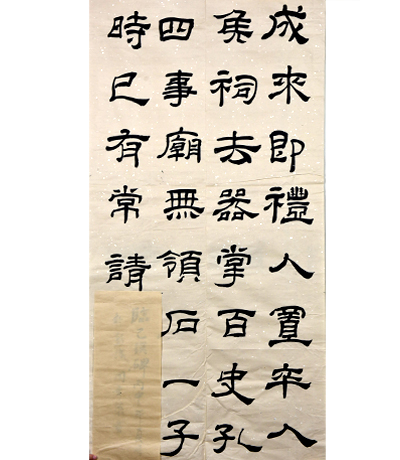 成來即禮人置卒入
侯祠去器掌百史孔
四事廟無領石一子
時已有常請